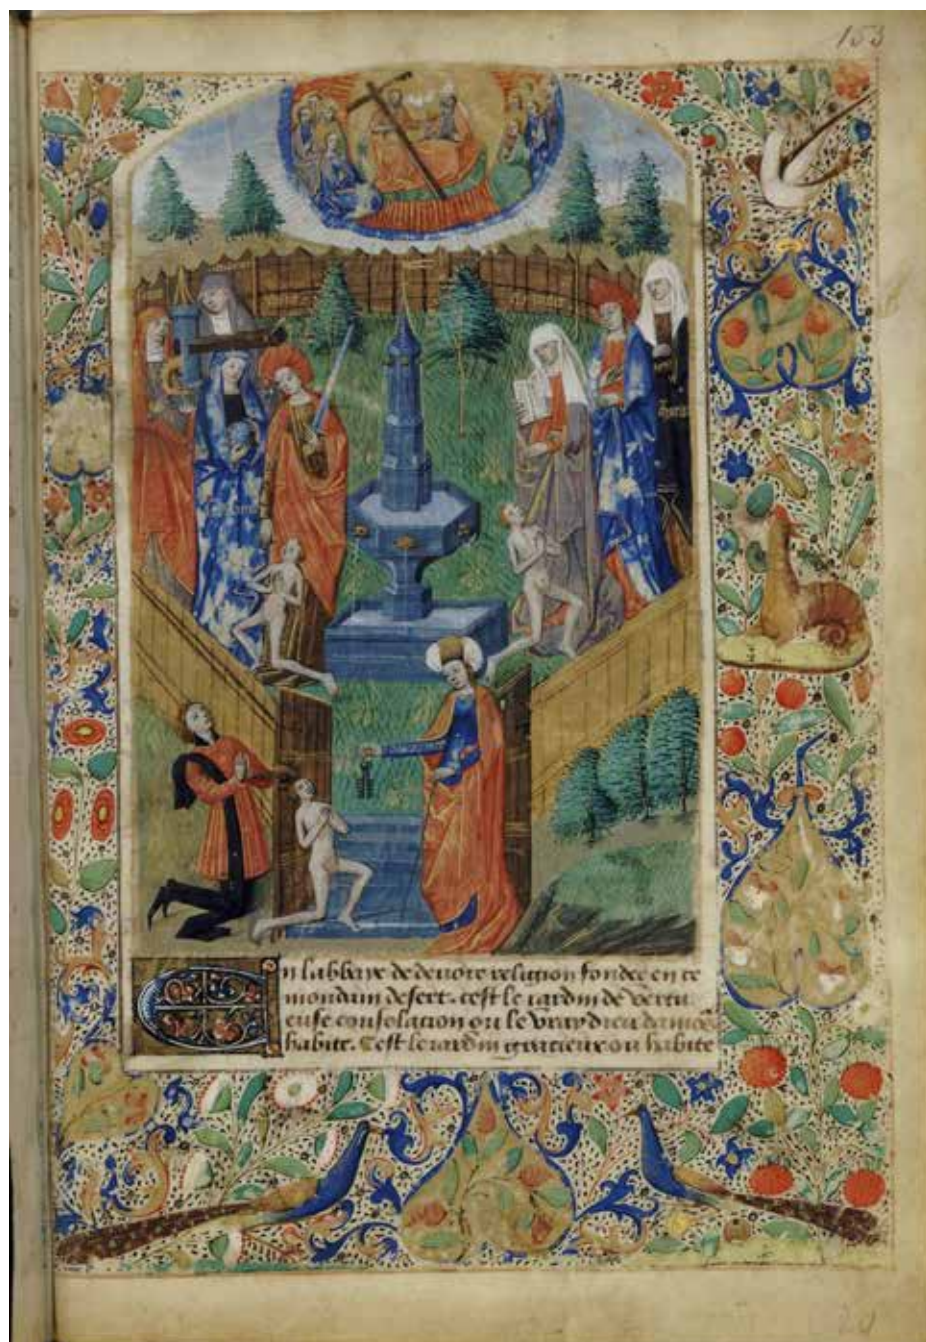 153
En l'abbaye de devote religion fondee en ce
mondain desert. cest le iardin de vertu
euse consolacion ou le vray dieu damo^rs
habite. Cest le iardin gracieux ou habite